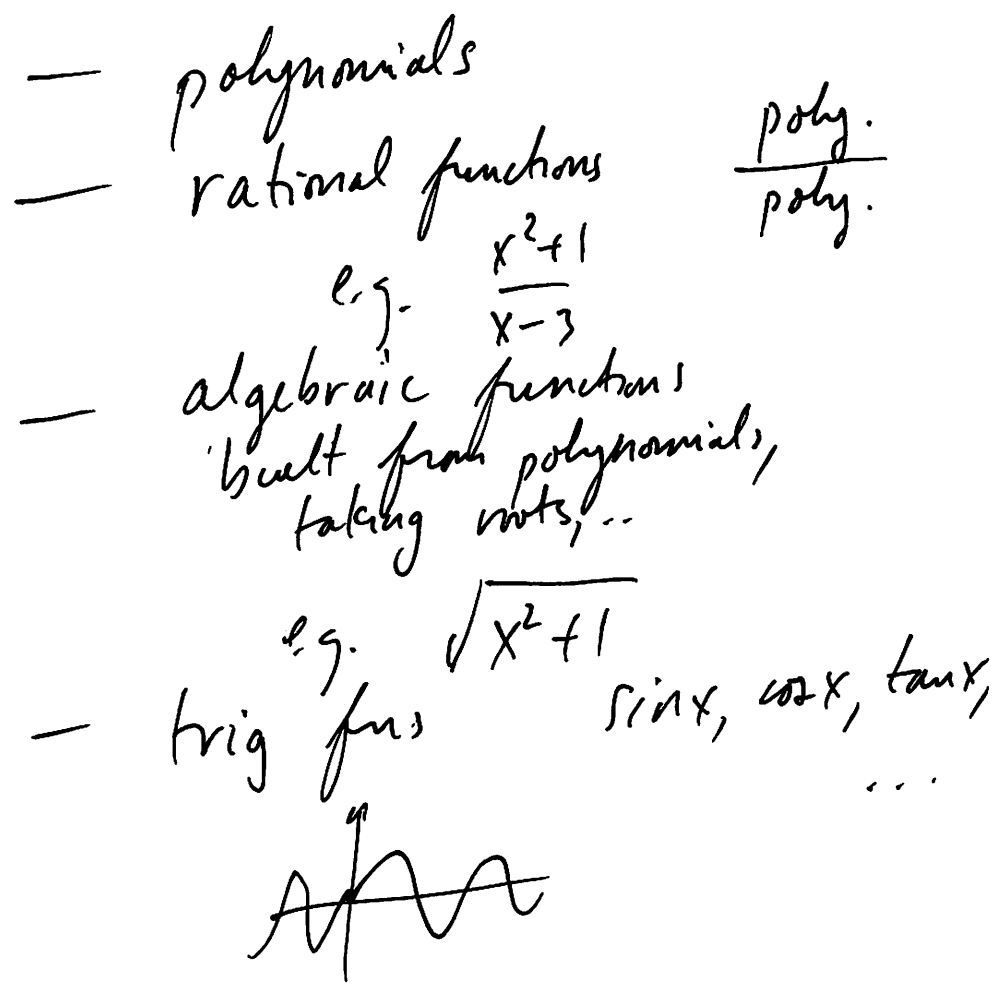 — polynomials
— rational functions poly. / poly.
e.g. x²+1 / x-3
— algebraic functions
built from polynomials,
taking roots, ..
e.g. √(x²+1)
— trig fns sinx, cosx, tanx,
...